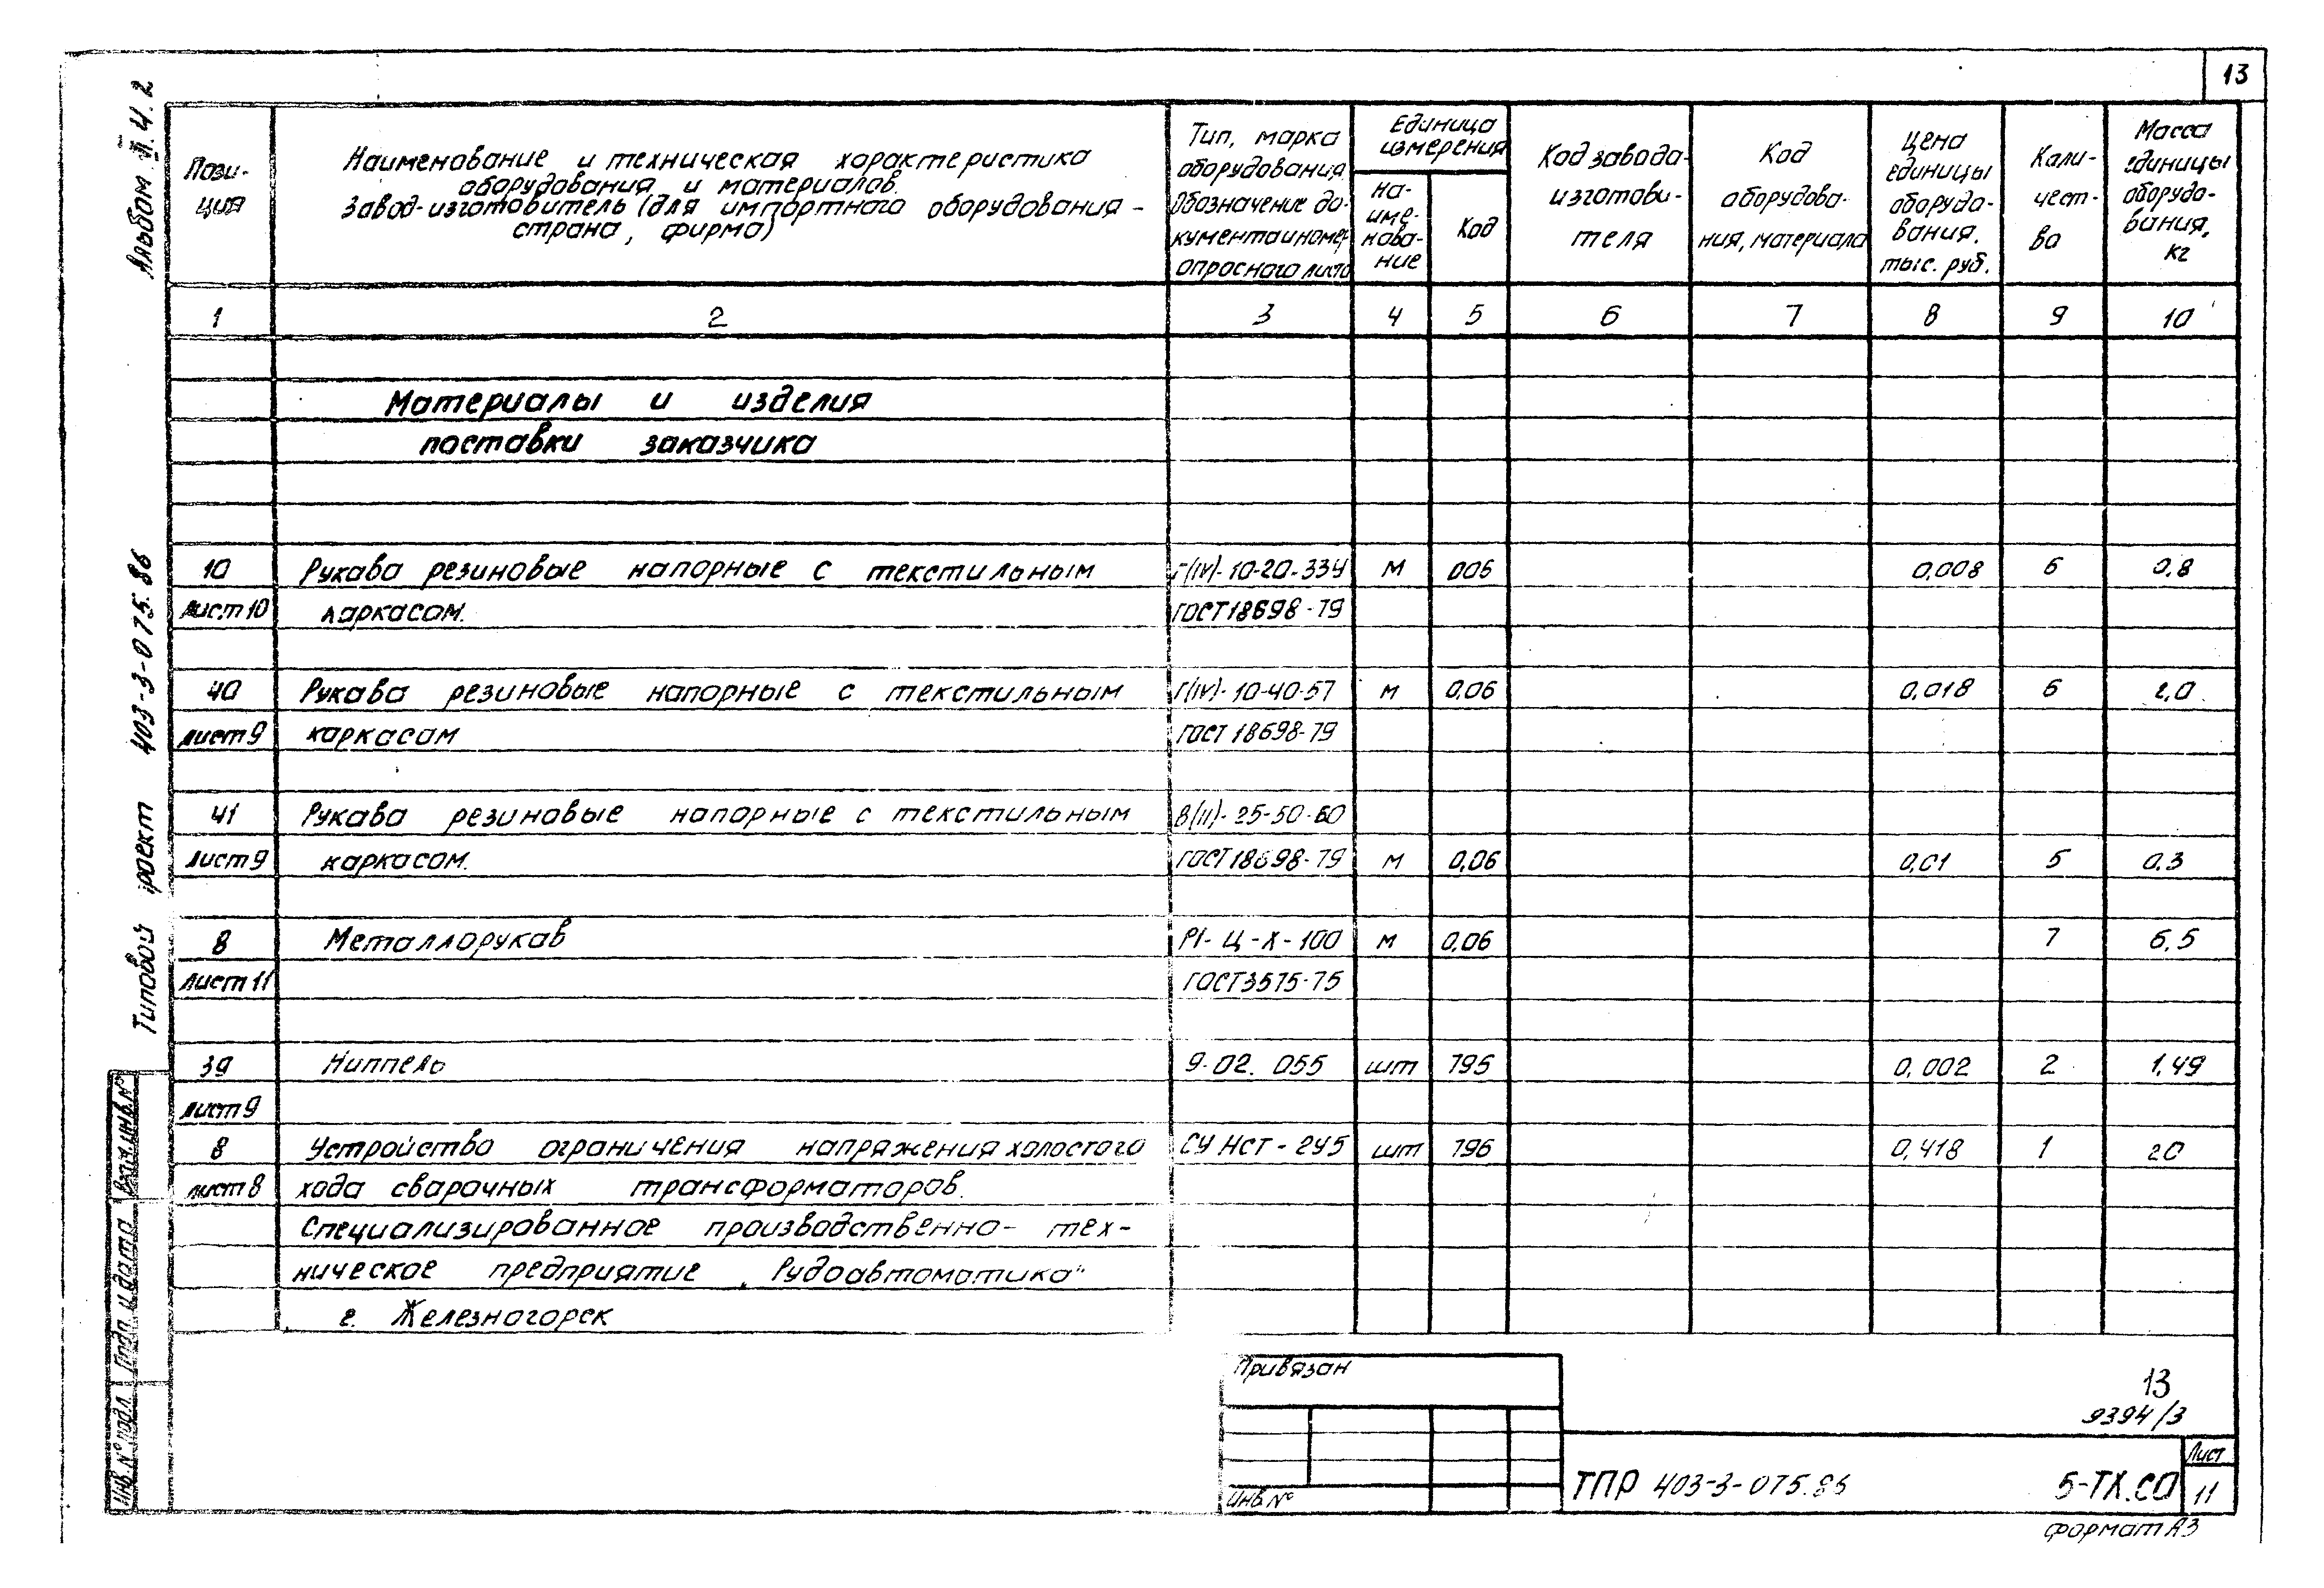 13
Альбом VI.4.2
Типовой проект 403-3-075.86
Пози-
ция
Наименование и техническая характеристика
оборудования и материалов.
Завод-изготовитель (для импортного оборудования -
страна, фирма)
Тип, марка
оборудования
Обозначение до-
кумента и номер
опросного листа
Единица
измерения
На-
име-
нова-
ние
Код
Код завода-
изготови-
теля
Код
оборудова-
ния, материала
Цена
единицы
оборудо-
вания,
тыс. руб.
Коли-
чест-
во
Масса
единицы
оборудо-
вания,
кг
1 2 3 4 5 6 7 8 9 10
Материалы и изделия
поставки заказчика
10 Рукава резиновые напорные с текстильным Г(IV)-10-20-33У м 006 0,008 6 0,8
Лист 10 каркасом. ГОСТ 18698-79
40 Рукава резиновые напорные с текстильным Г(IV)-10-40-57 м 0,06 0,018 6 2,0
Лист 9 каркасом ГОСТ 18698-79
41 Рукава резиновые напорные с текстильным В(II)-25-50-60
Лист 9 каркасом. ГОСТ 18698-79 м 0,06 0,01 5 0,3
8 Металлорукав Р1-Ц-Х-100 м 0,06 7 6,5
Лист 11 ГОСТ 3575-75
39 Ниппель 9.02.055 шт 796 0,002 2 1,49
Лист 9
8 Устройство ограничения напряжения холостого СУ НСТ-2У5 шт 796 0,418 1 20
Лист 8 хода сварочных трансформаторов.
Специализированное производственно-тех-
ническое предприятие „Рудоавтоматика"
г. Железногорск
Взам. инв. №
Подп. и дата
Инв. № подл.
Привязан
Инв. №
13
9394/3
ТПР 403-3-075.86 5-ТХ.СО
Лист
11
формат А3